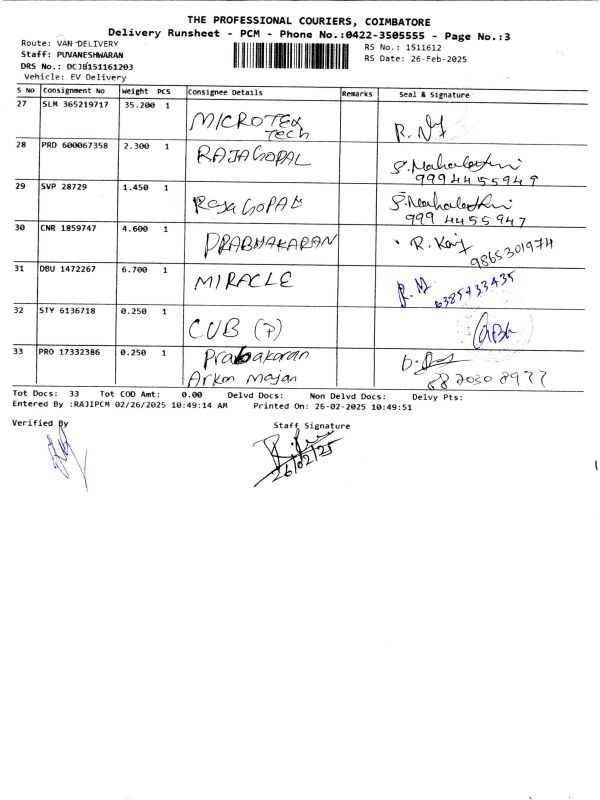 THE PROFESSIONAL COURIERS, COIMBATORE
Delivery Runsheet - PCM - Phone No.:0422-3505555 - Page No.:3
Route: VAN DELIVERY
RS No.: 1511612
Staff: PUVANESHWARAN
RS Date: 26-Feb-2025
DRS No.: DCJB151161203
Vehicle: EV Delivery
S No Consignment No Weight PCS Consignee Details Remarks Seal & Signature
27 SLM 365219717 35.200 1 MICROTEX
Tech
28 PRD 600067358 2.300 1 RAJAGOPAL
9994455949
29 SVP 28729 1.450 1 RAJAGOPAL
999 4455947
30 CNR 1859747 4.600 1 PRABHAKARAN
9865301974
31 DBU 1472267 6.700 1 MIRACLE
6385733435
32 STY 6136718 0.250 1 CUB (P)
33 PRO 17332386 0.250 1 Prabakaran
Arkon Majan
88 70308977
Tot Docs: 33 Tot COD Amt: 0.00 Delvd Docs: Non Delvd Docs: Delvy Pts:
Entered By :RAJIPCM 02/26/2025 10:49:14 AM Printed On: 26-02-2025 10:49:51
Verified By
Staff Signature
26/02/25